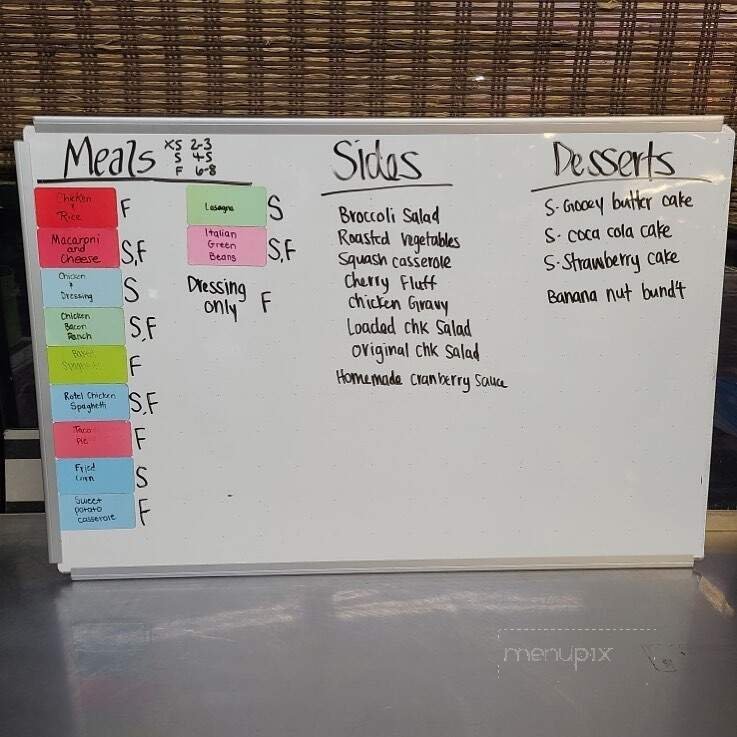 Meals XS 2-3
S 4-5
F 6-8
Chicken
+
Rice F
Macaroni
and
Cheese S,F
Chicken
+
Dressing S
Chicken
Bacon
Ranch S,F
Baked
Spaghetti F
Rotel Chicken
Spaghetti S,F
Taco
Pie F
Fried
Corn S
Sweet
potato
casserole F
Lasagna S
Italian
Green
Beans S,F
Dressing
only F
Sides
Broccoli Salad
Roasted vegetables
Squash casserole
Cherry Fluff
Chicken Gravy
Loaded Chk Salad
original Chk Salad
Homemade cranberry Sauce
Desserts
S- Gooey butter cake
S- coca cola cake
S- Strawberry cake
Banana nut bundt
menupix